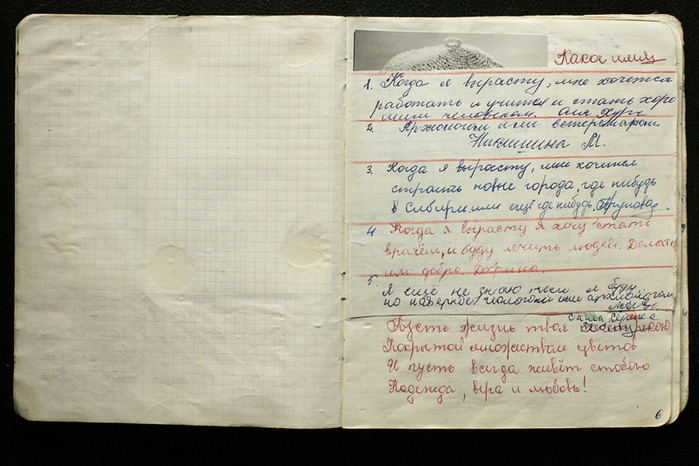 Какое имя
1. Когда я вырасту, мне хочется
работать и учится и стать хоро
шим человеком.
2. Архиологом или ветеренаром
Никишина М.
3. Когда я вырасту, мне хочится
строить новые города, где нибудь
в Сибири или ещё где нибудь.
4 Когда я вырасту я хочу стать
врачём, и буду лечить людей. Делать
им добро.
5. Я ещё не знаю кем я буду
но наверное геологом или археологом
Пусть жизнь твоя
Покрытой множеством цветов
И пусть всегда живёт с тобою
Надежда, вера и любовь!
6